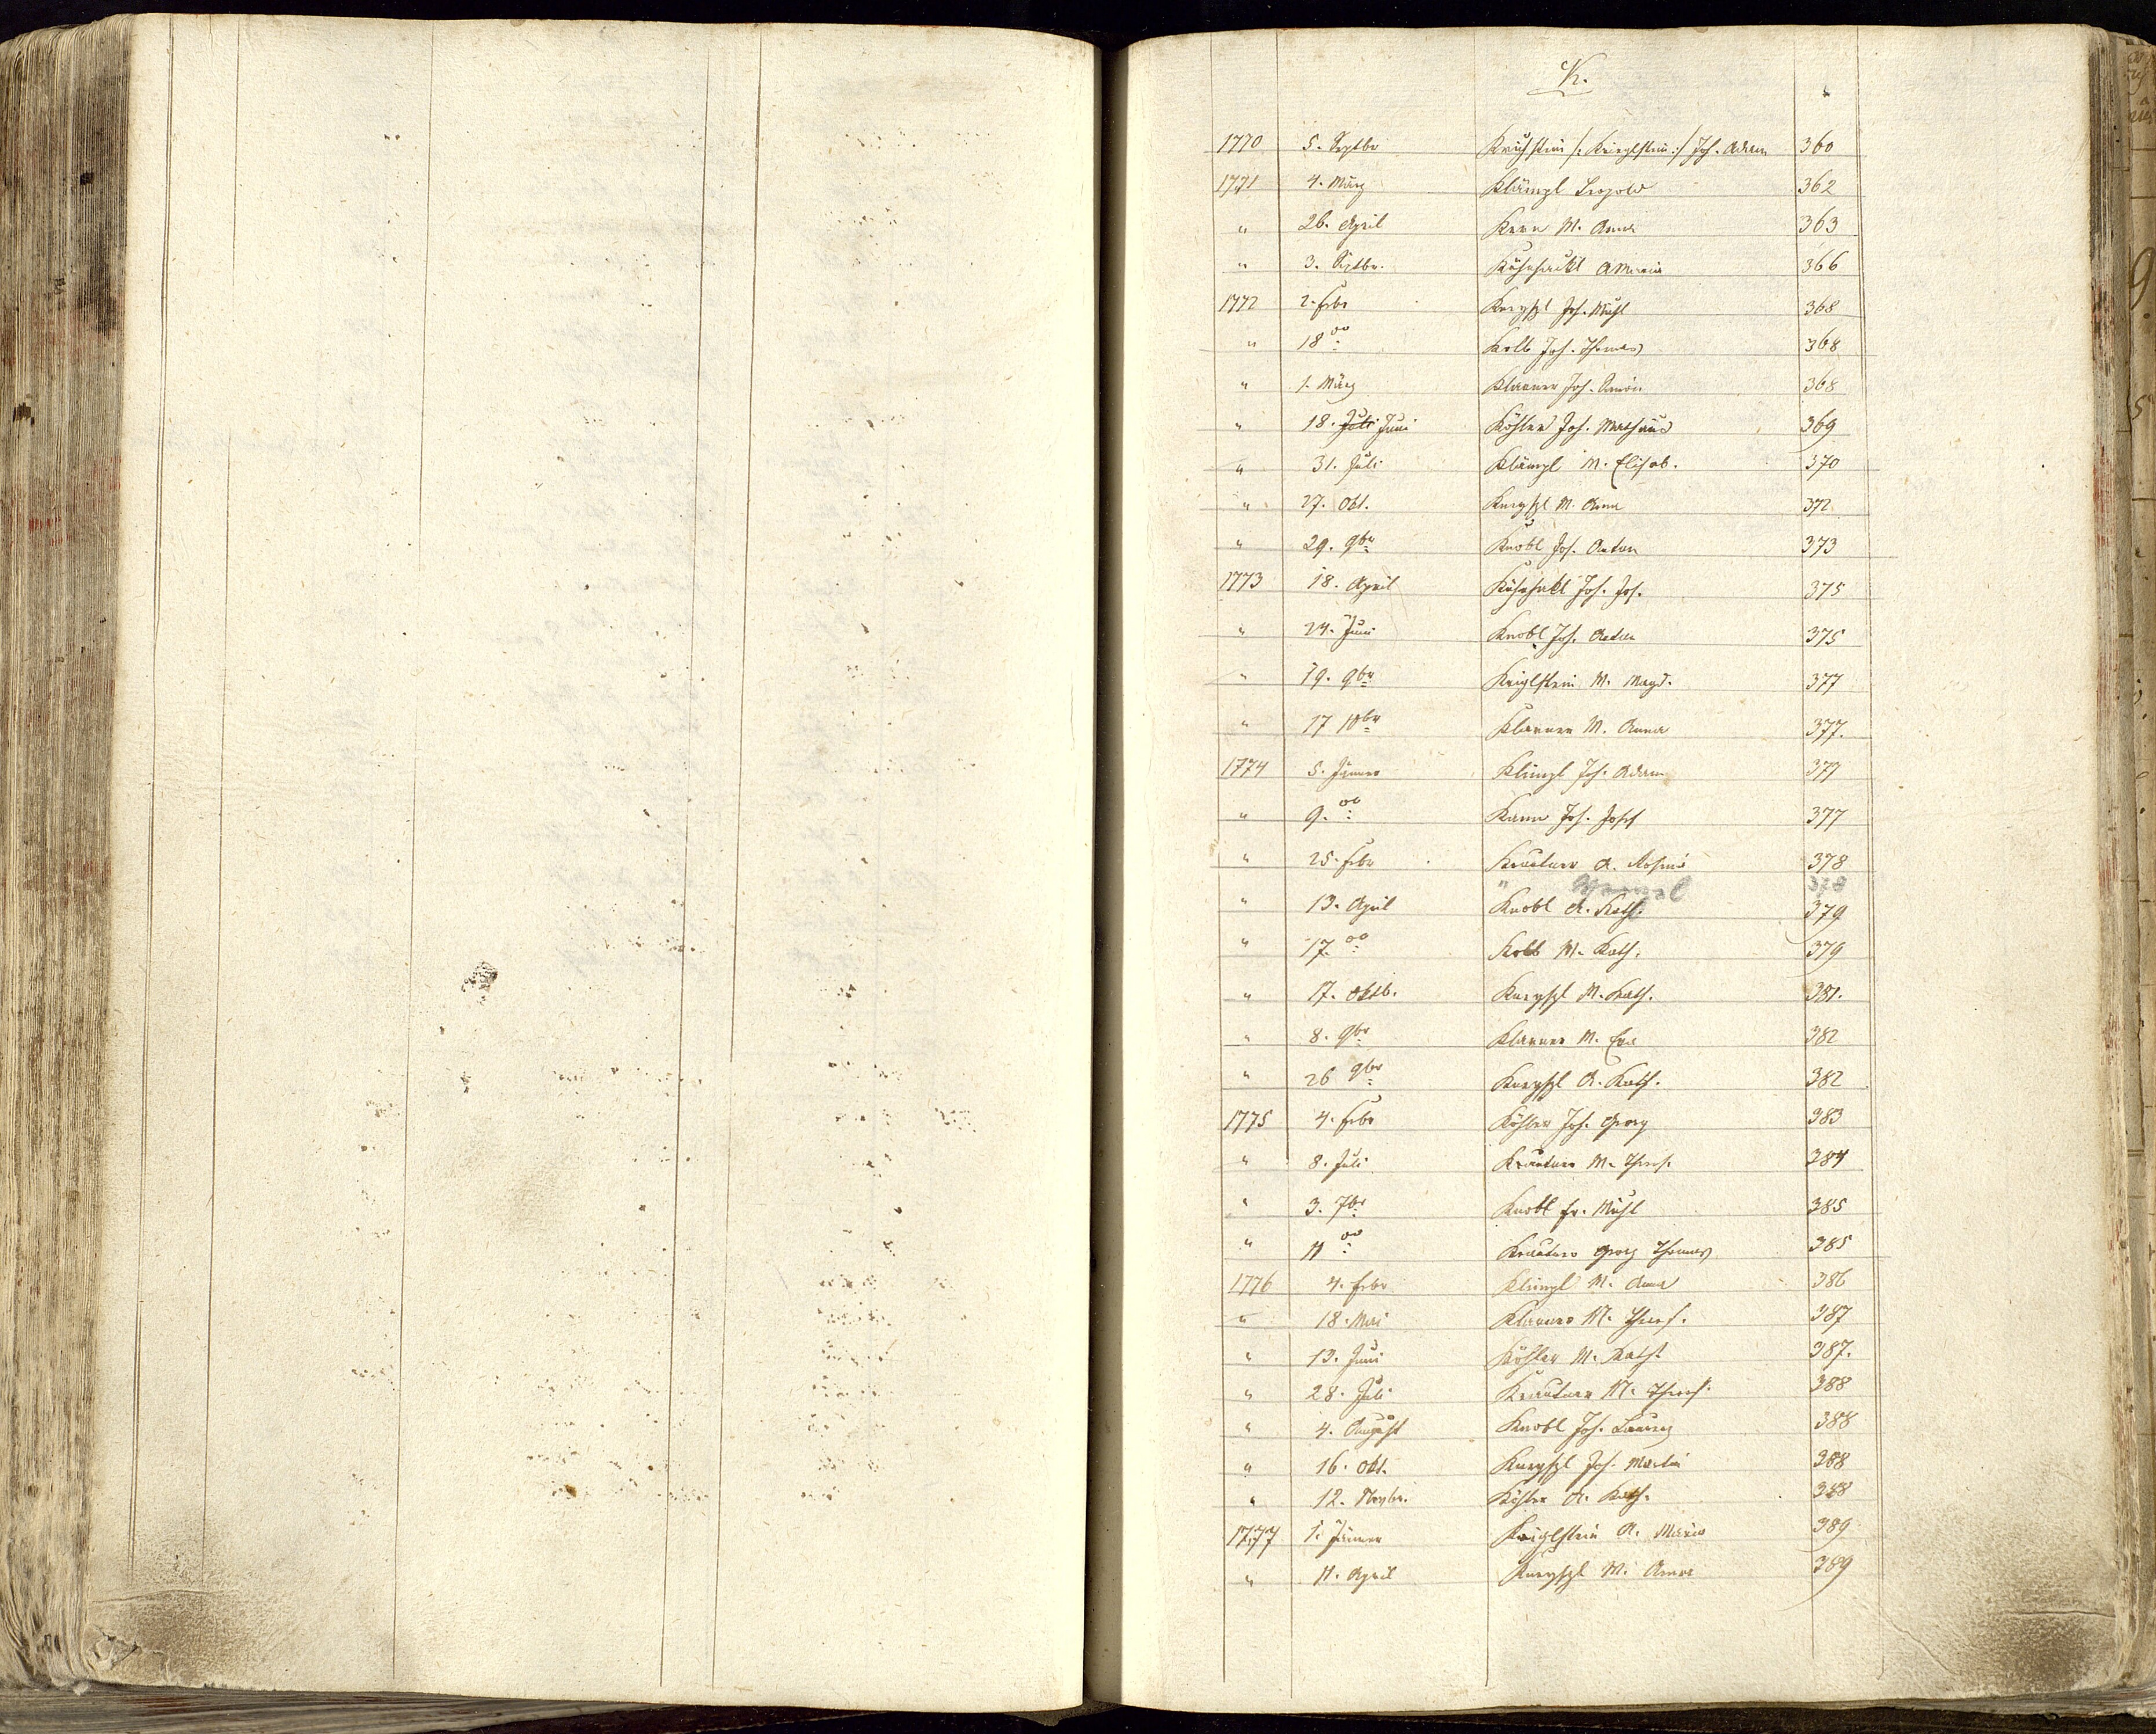 K.
1770 5. Septbr Kriegstein /: Krieglstein :/ Joh. Adam 360
1771 4. März Klämpl Leopold 362
" 26. April Kern M. Anna 363
" 3. Septbr. Kühhackl A Maria 366
1772 2. Febr Joh. Michl 368
" 18 do: Kolb Joh. Thomas 368
" 1. März Klarner Joh. Simon 368
" 18. Juli Juni Köhler Joh. Mathäus 369
" 31. Juli Klämpl M. Elisab. 370
" 27. Okt. M. Anna 372
" 29. 9br Knobl Joh. Anton 373
1773 18. April Kühhakl Joh. Jos. 375
" 24. Juni Knobl Joh. Anton 375
" 19. 9br Kriglstein M. Magd. 377
" 17 10br Klarner M. Anna 377.
1774 5. Jänner Klimpl Joh. Adam 377
" 9. do: Joh. Josef 377
" 25. Febr Krautner A. Rosina 378
" 378
" 13. April Knobl A. Kath. 379
" 17. do: Kolb M. Kath. 379
" 17. Oktb. M. Kath. 381.
" 8. 9br Klarner M. Eva 382
" 26 9br A. Kath. 382
1775 4. Febr Köhler Joh. Georg 383
" 8. Juli Krautner M. Theres. 384
" 3. 7br Knobl Fr. Michl 385
" 11 do: Krautner Georg Thomas 385
1776 4. Febr Klimpl M. Anna 386
" 18. Mai Klarner M. Theres. 387
" 13. Juni Köhler M. Kath. 387.
" 28. Juli Krautner M. Theres. 388
" 4. August Knobl Joh. Laurenz 388
" 16. Okt. Joh. Martin 388
" 12. Novbr. Köhler A. Kath. 388
1777 1. Jänner Kriglstein A. Maria 389
" 11. April M. Anna 389